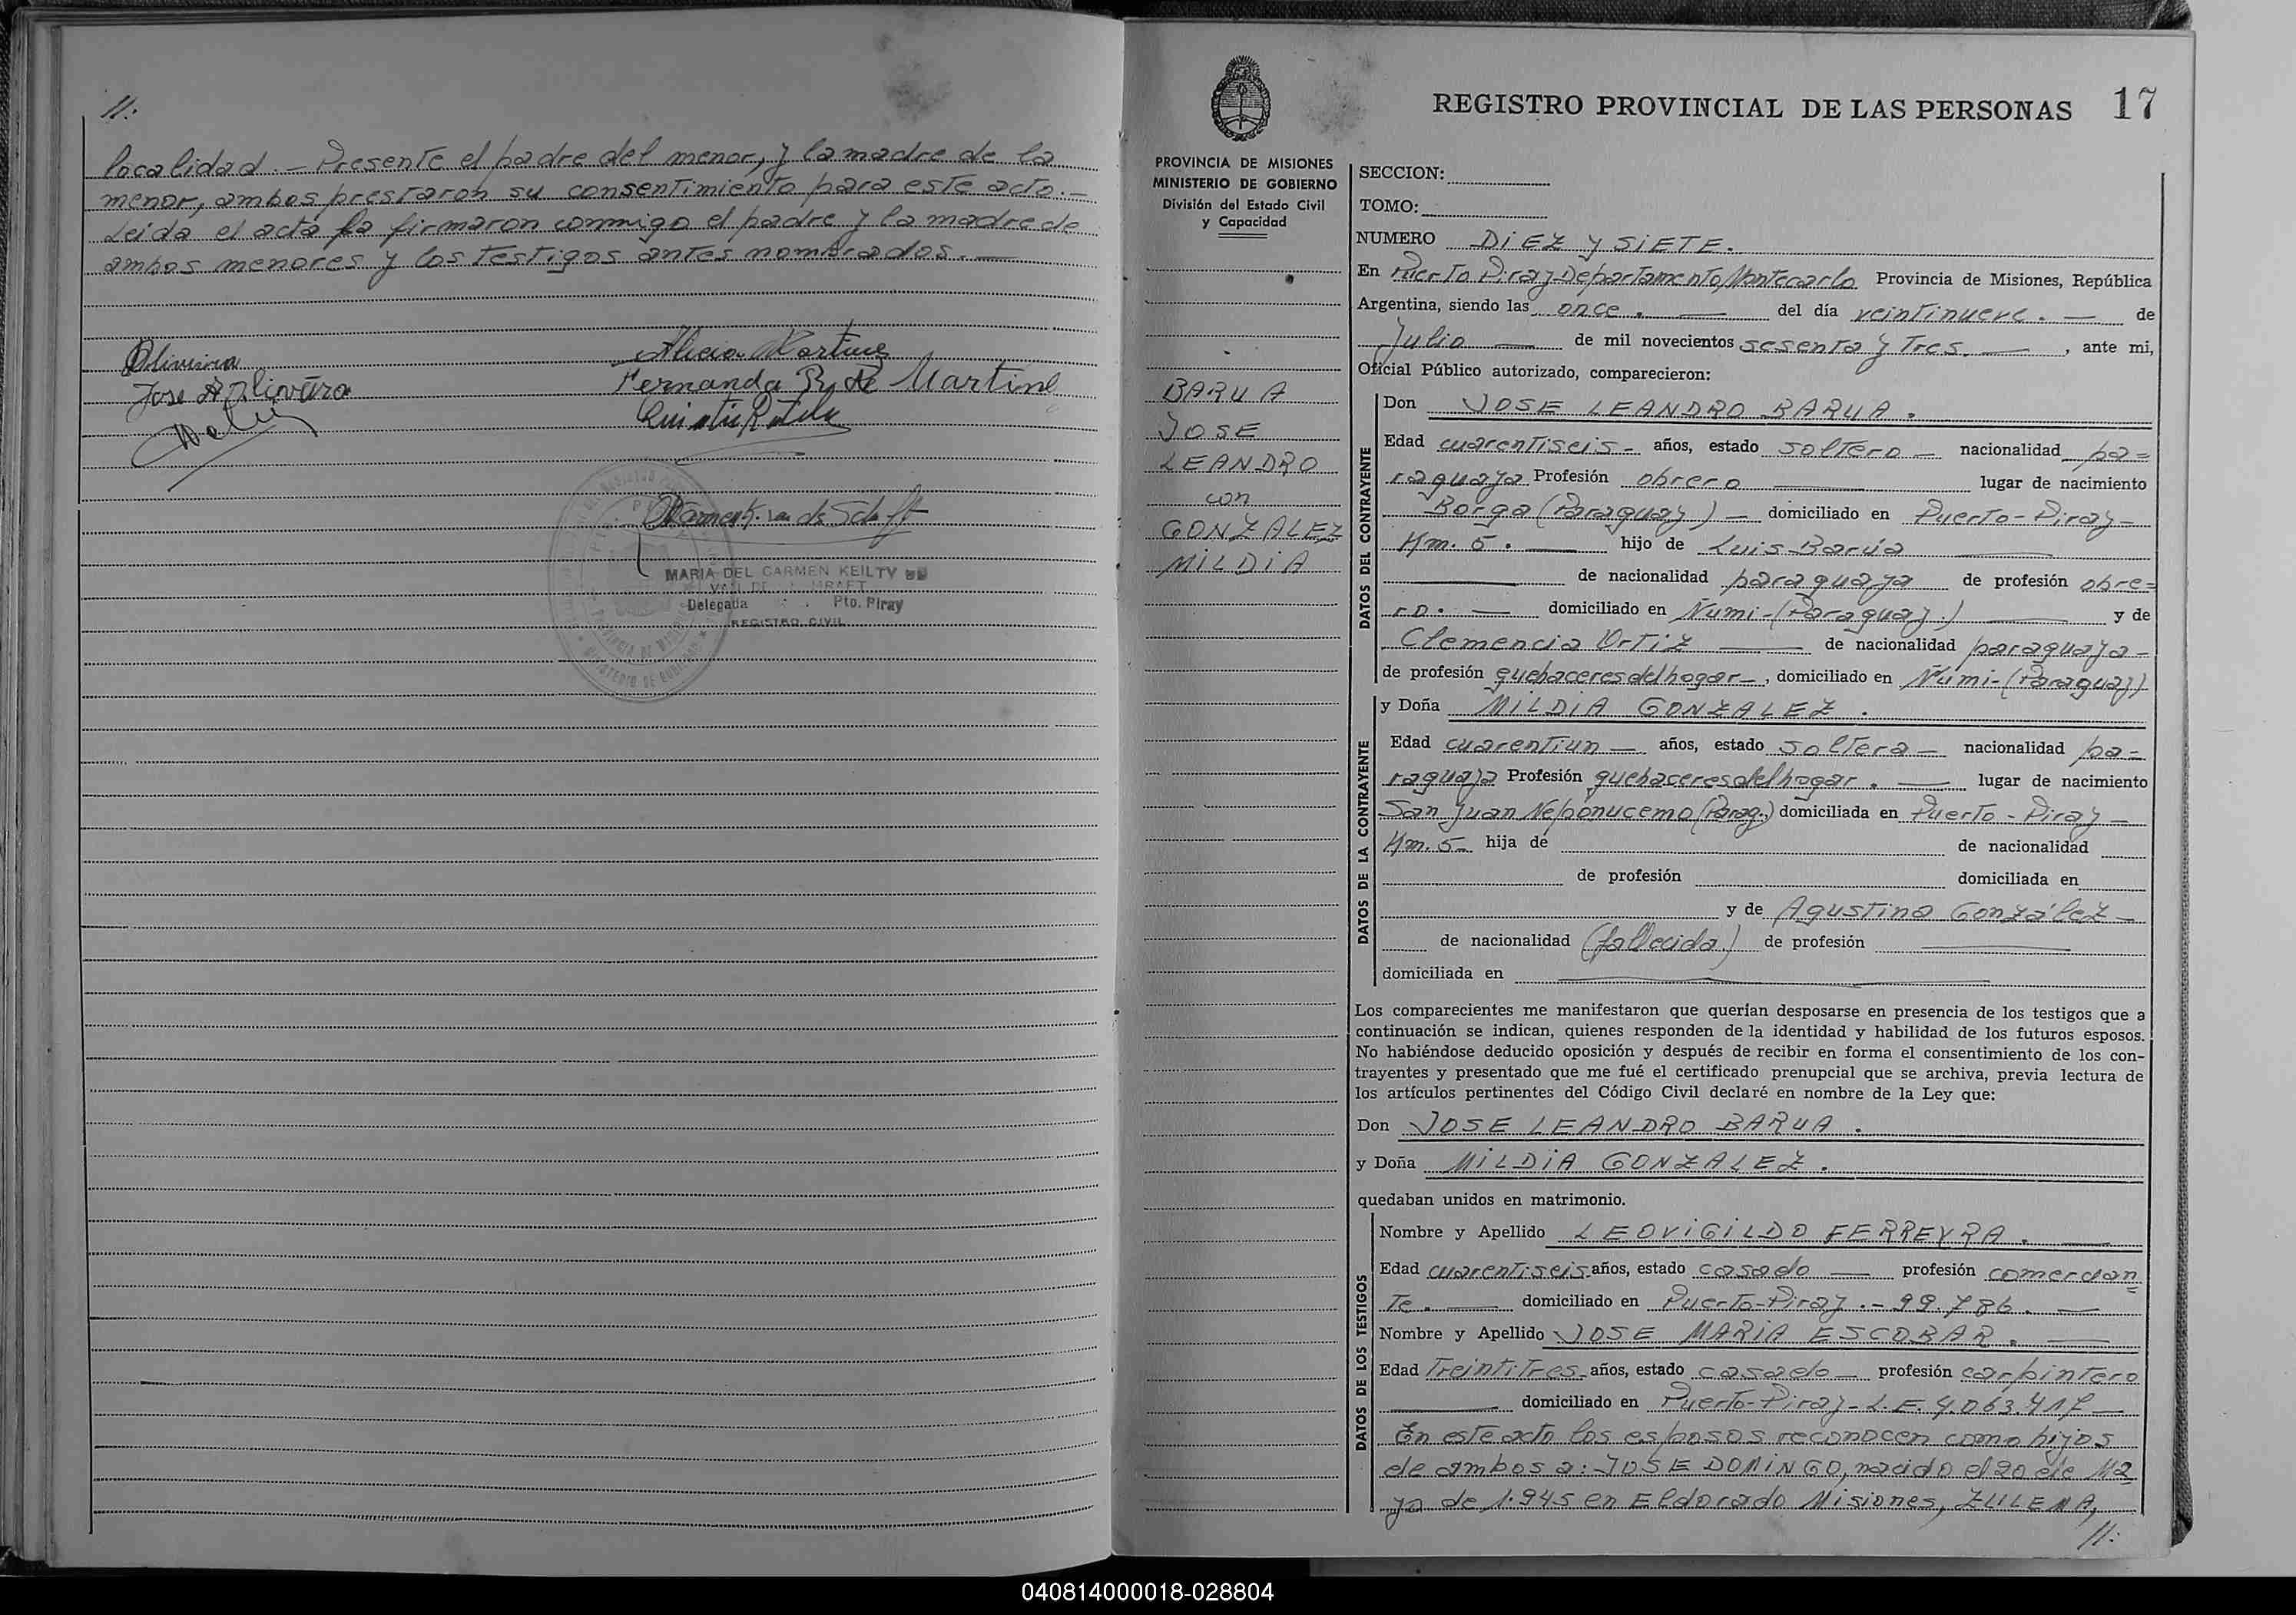 //.
localidad.- Presente el padre del menor, y la madre de la
menor, ambos prestaron su consentimiento para este acto.-
Leida el acta la firmaron conmigo el padre y la madre de
ambos menores y los testigos antes nombrados.-
Oliveira
Alicia Martinez
Jose A Olivera
Fernanda R. de Martine
MARIA DEL CARMEN KEILTY
Delegada Pto. Piray
REGISTRO CIVIL
REGISTRO PROVINCIAL DE LAS PERSONAS 17
PROVINCIA DE MISIONES
MINISTERIO DE GOBIERNO
División del Estado Civil
y Capacidad
BARUA
JOSE
LEANDRO
con
GONZALEZ
MILDIA
SECCION:
TOMO:
NUMERO DIEZ Y SIETE.
En Puerto Piray-Departamento Montecarlo Provincia de Misiones, República
Argentina, siendo las once.- del día veintinueve.- de
Julio - de mil novecientos sesenta y Tres.-, ante mi,
Oficial Público autorizado, comparecieron:
DATOS DEL CONTRAYENTE
Don JOSE LEANDRO BARUA.
Edad cuarentiseis- años, estado soltero- nacionalidad pa=
raguaya Profesión obrero - lugar de nacimiento
Borga (Paraguay)- domiciliado en Puerto-Piray-
Km. 5.- hijo de Luis Barúa
de nacionalidad paraguaya de profesión obre=
ro.- domiciliado en Ñumi-(Paraguay.) - y de
Clemencia Ortiz - de nacionalidad paraguaya-
de profesión quehaceres del hogar-, domiciliado en Ñumi-(Paraguay)
DATOS DE LA CONTRAYENTE
y Doña MILDIA GONZALEZ.
Edad cuarentiun- años, estado soltera- nacionalidad pa=
raguaya Profesión quehaceres del hogar.- lugar de nacimiento
San Juan Neponucemo (Parag.) domiciliada en Puerto-Piray-
Km. 5- hija de de nacionalidad
de profesión domiciliada en
y de Agustina González-
de nacionalidad (fallecida.) de profesión
domiciliada en
Los comparecientes me manifestaron que querían desposarse en presencia de los testigos que a
continuación se indican, quienes responden de la identidad y habilidad de los futuros esposos.
No habiéndose deducido oposición y después de recibir en forma el consentimiento de los con-
trayentes y presentado que me fué el certificado prenupcial que se archiva, previa lectura de
los artículos pertinentes del Código Civil declaré en nombre de la Ley que:
Don JOSE LEANDRO BARUA.
y Doña MILDIA GONZALEZ.
quedaban unidos en matrimonio.
DATOS DE LOS TESTIGOS
Nombre y Apellido LEOVIGILDO FERREYRA.-
Edad cuarentiseis años, estado casado - profesión comercian=
Te.- domiciliado en Puerto-Piray.- 99.786.-
Nombre y Apellido JOSE MARIA ESCOBAR.-
Edad Treintitres años, estado casado- profesión carpintero
domiciliado en Puerto-Piray-L.E. 4.063.417-
En este acto los esposos reconocen como hijos
de ambos a: JOSE DOMINGO, nacido el 20 de Ma
yo de 1.945 en Eldorado Misiones, ZULEMA,
//.
040814000018-028804